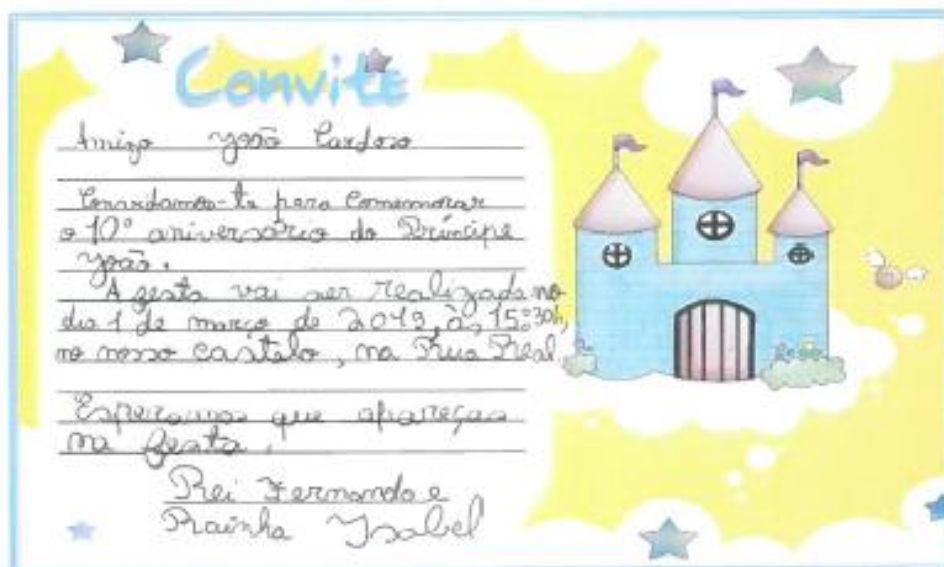 Convite
Amigo João Cardoso
Convidamos-te para Comemorar
o 10º aniversário do Príncipe
João.
A festa vai ser realizada no
dia 1 de março de 2019, às 15:30h,
no nosso castelo, na Rua Real.
Esperamos que apareças
na festa.
Rei Fernando e
Rainha Isabel